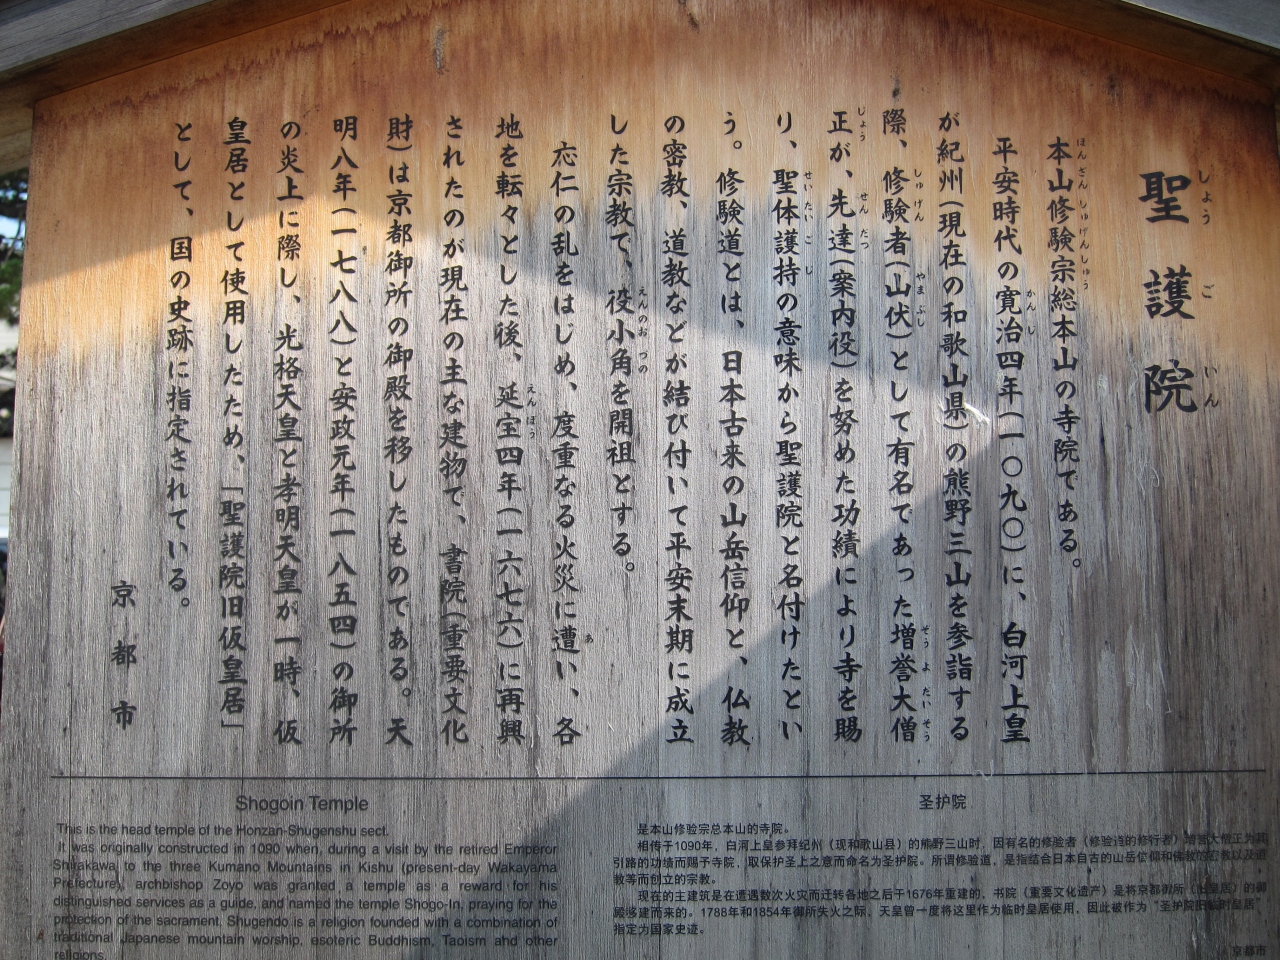 聖護院
本山修験宗総本山の寺院である。
平安時代の寛治四年(一〇九〇)に、白河上皇
が紀州(現在の和歌山県)の熊野三山を参詣する
際、修験者(山伏)として有名であった増誉大僧
正が、先達(案内役)を努めた功績により寺を賜
り、聖体護持の意味から聖護院と名付けたとい
う。修験道とは、日本古来の山岳信仰と、仏教
の密教、道教などが結び付いて平安末期に成立
した宗教で、役小角を開祖とする。
応仁の乱をはじめ、度重なる火災に遭い、各
地を転々とした後、延宝四年(一六七六)に再興
されたのが現在の主な建物で、書院(重要文化
財)は京都御所の御殿を移したものである。天
明八年(一七八八)と安政元年(一八五四)の御所
の炎上に際し、光格天皇と孝明天皇が一時、仮
皇居として使用したため、「聖護院旧仮皇居」
として、国の史跡に指定されている。
京都市
Shogoin Temple
This is the head temple of the Honzan-Shugenshu sect.
It was originally constructed in 1090 when, during a visit by the retired Emperor
Shirakawa to the three Kumano Mountains in Kishu (present-day Wakayama
Prefecture), archbishop Zoyo was granted a temple as a reward for his
distinguished services as a guide, and named the temple Shogo-In, praying for the
protection of the sacrament. Shugendo is a religion founded with a combination of
traditional Japanese mountain worship, esoteric Buddhism, Taoism and other
religions.
圣护院
是本山修验宗总本山的寺院。
相传于1090年，白河上皇参拜纪州（现和歌山县）的熊野三山时，因有名的修验者（修验道的修行者）增誉大僧正为其
引路的功绩而赐予寺院，取保护圣上之意而命名为圣护院。所谓修验道，是指结合日本自古的山岳信仰和佛教的密教以及道
教等而创立的宗教。
现在的主建筑是在遭遇数次火灾而迁转各地之后于1676年重建的，书院（重要文化遗产）是将京都御所（旧皇居）的御
殿移建而来的。1788年和1854年御所失火之际，天皇曾一度将这里作为临时皇居使用，因此被作为“圣护院旧临时皇居”
指定为国家史迹。
京都市